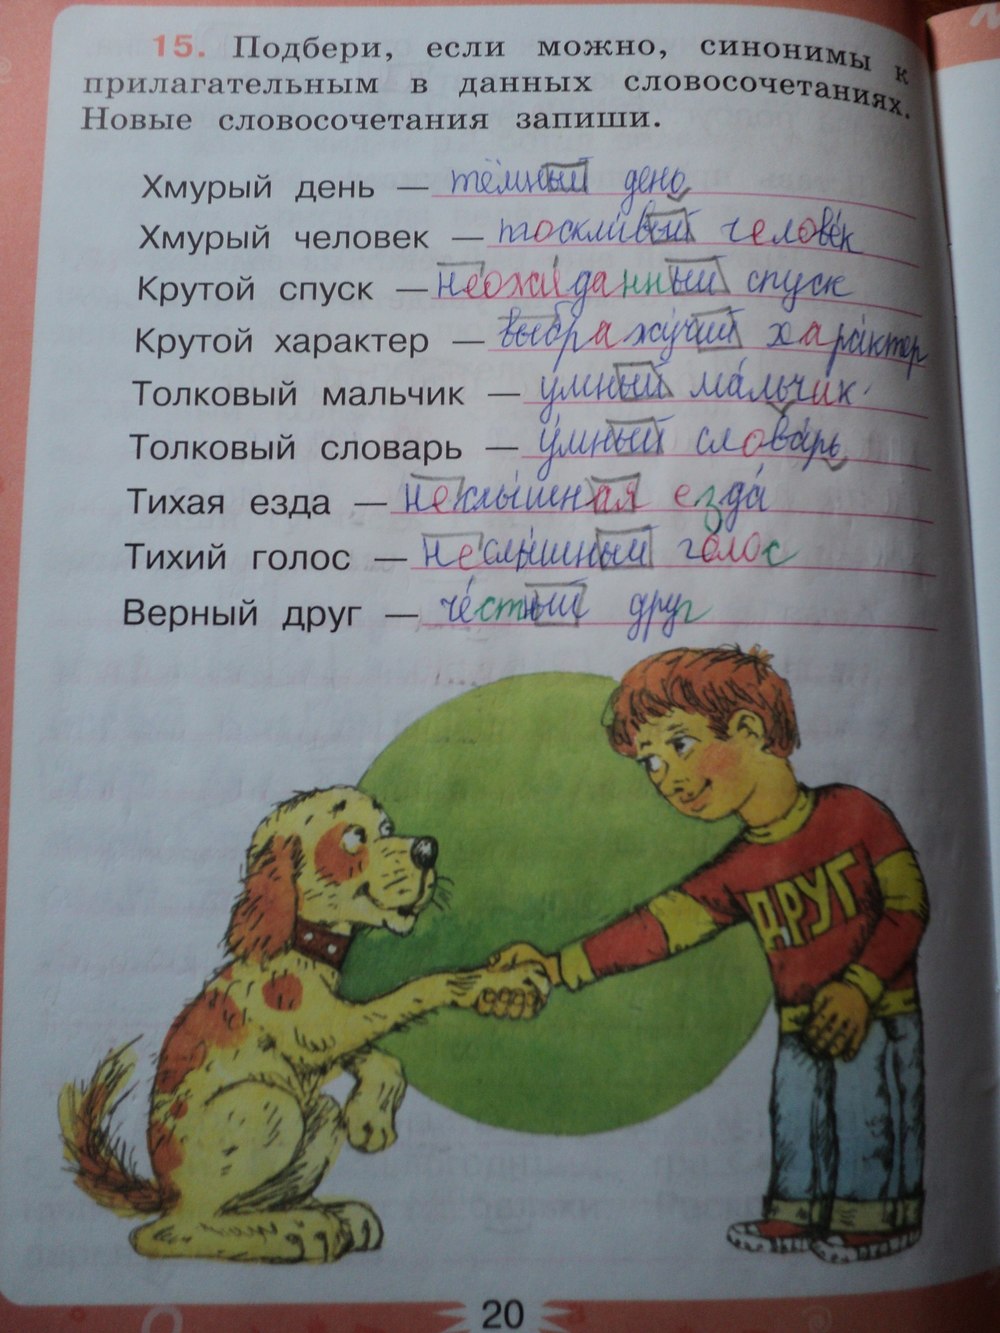 15. Подбери, если можно, синонимы к
прилагательным в данных словосочетаниях.
Новые словосочетания запиши.
Хмурый день — тёмный день
Хмурый человек — тоскливый человек
Крутой спуск — неожиданный спуск
Крутой характер — характер
Толковый мальчик — умный мальчик
Толковый словарь — умный словарь
Тихая езда — езда
Тихий голос — неслышный голос
Верный друг — честный друг
ДРУГ
20